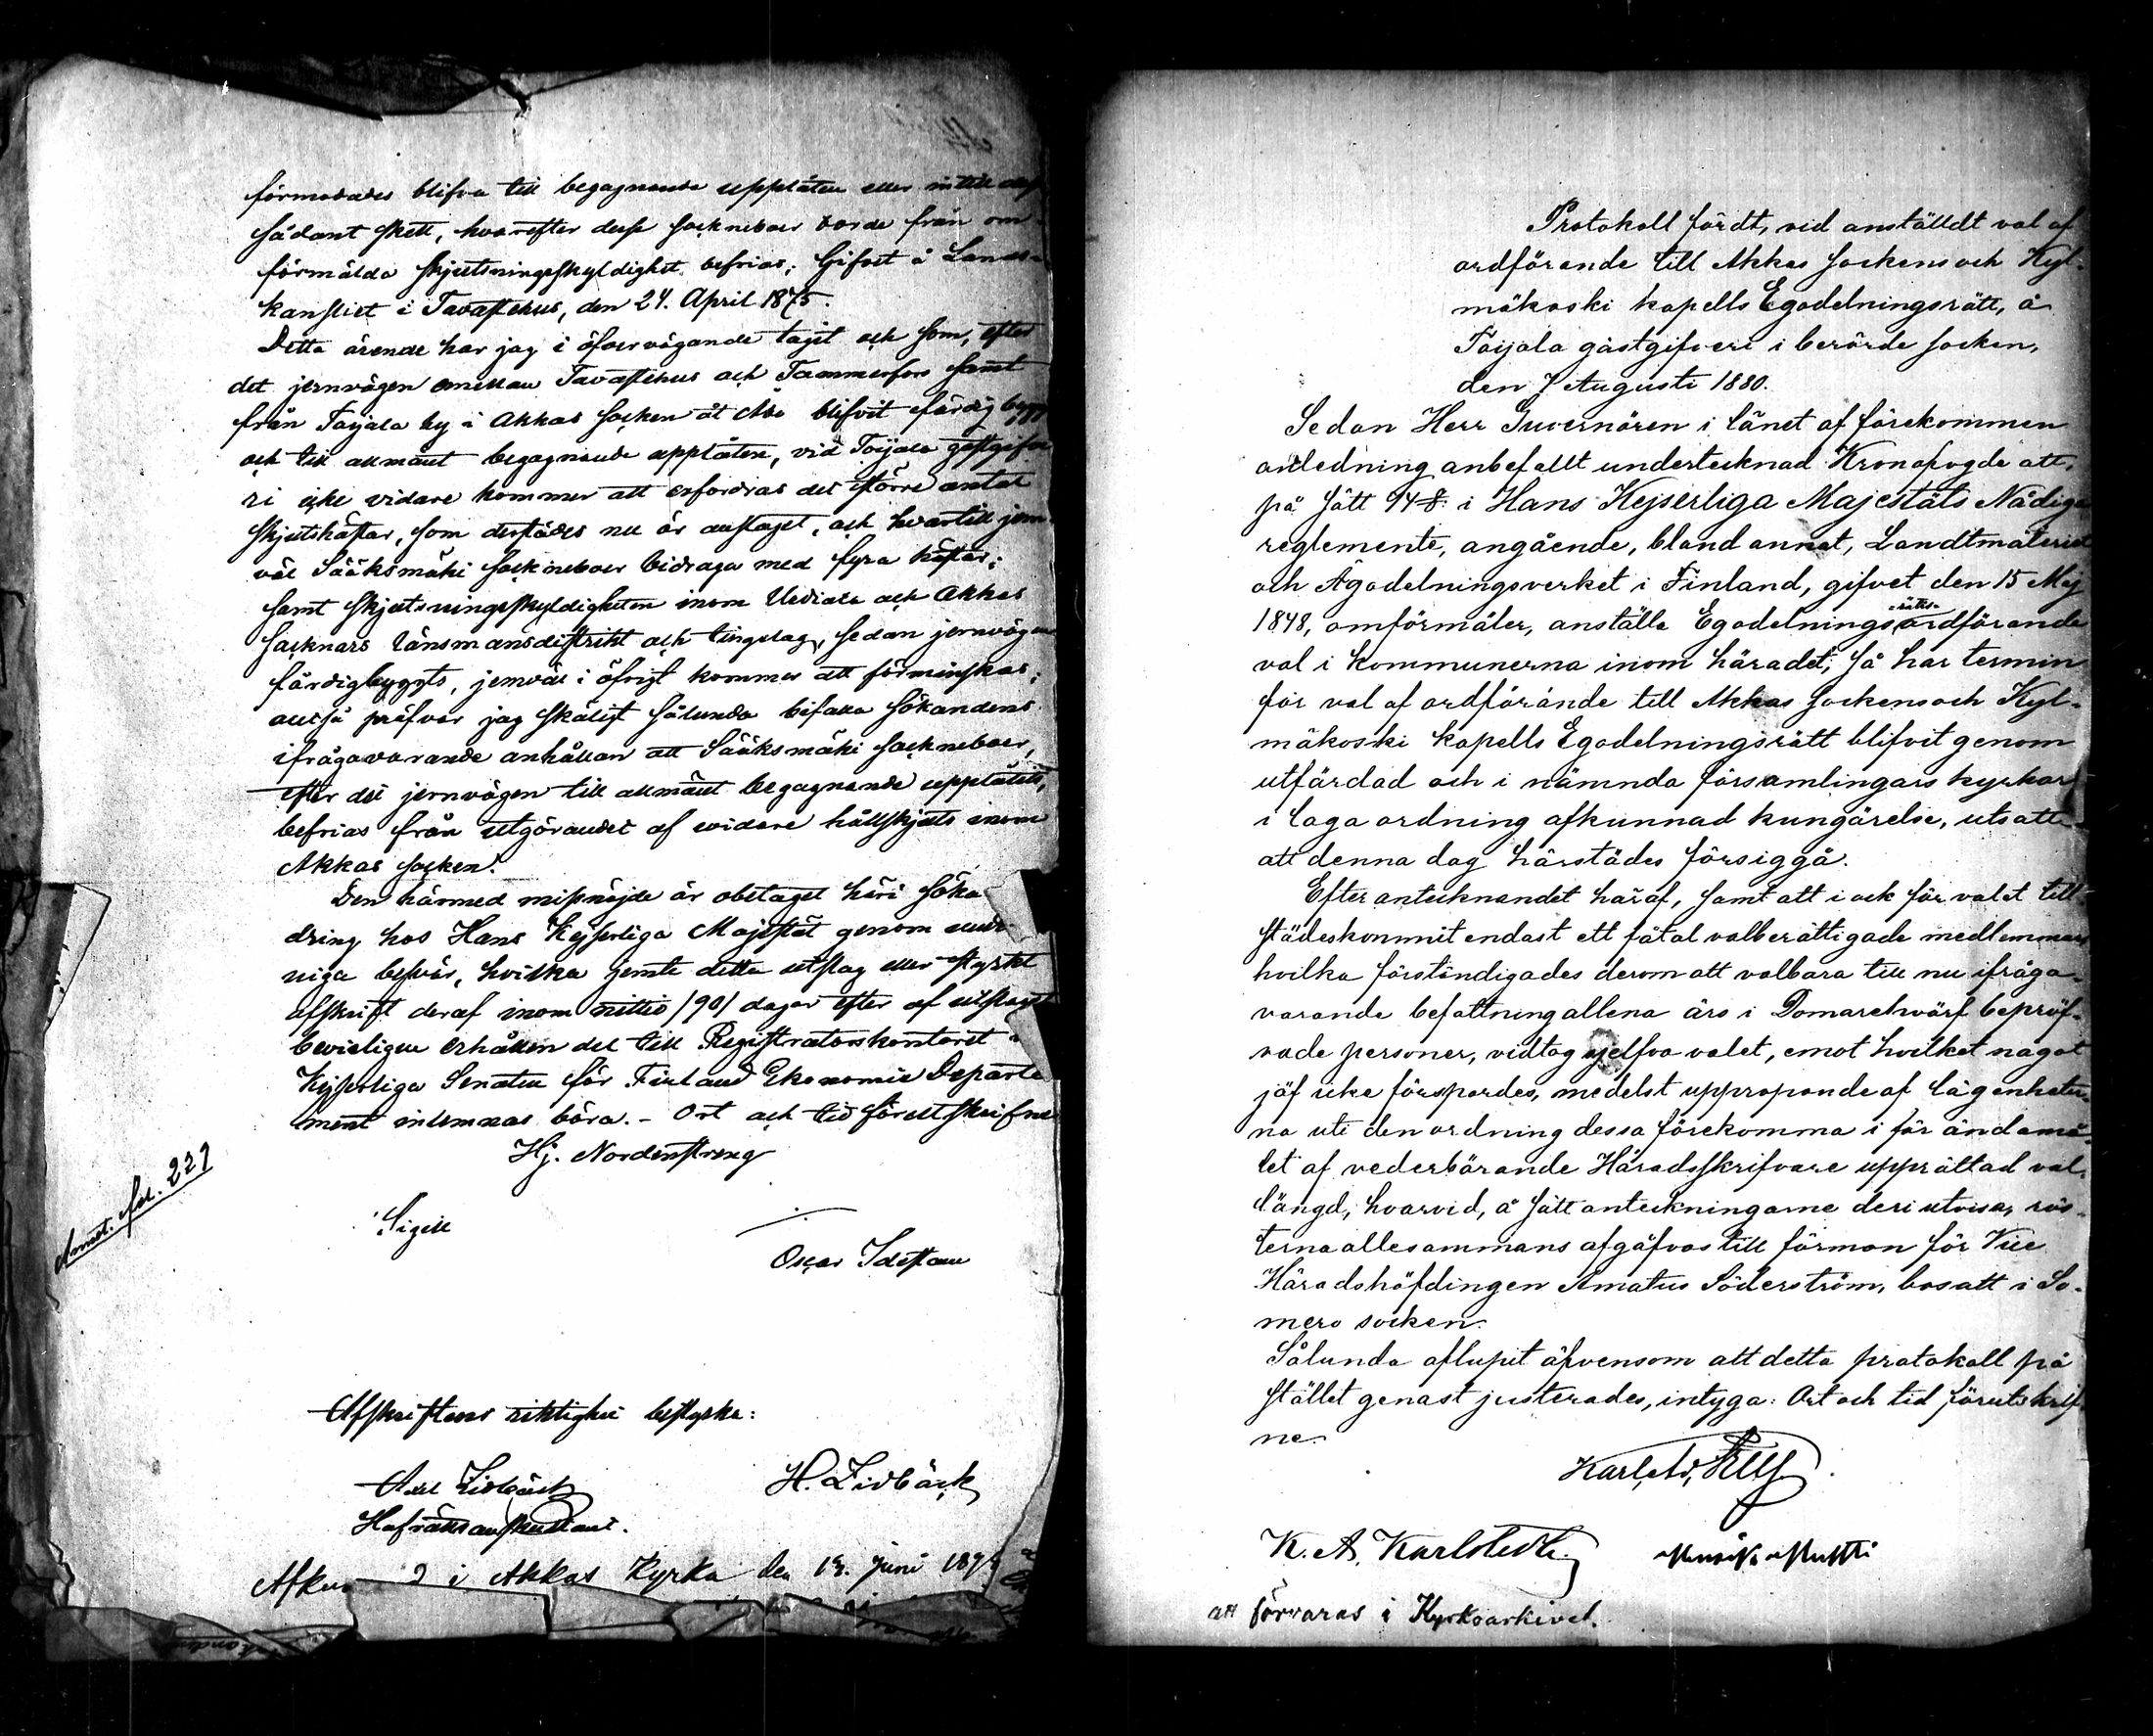 förmodades blifva till begagnande upplåten eller intill dess
sådant skett, hvarefter desse sockneboer borde från om-
förmälda skjutsningsskyldighet befrias; Gifvet å Lands-
kansliet i Tavastehus, den 24. April 1875.
Detta ärende har jag i öfvervägande taget och som, efter
det jernvägen emellan Tavastehus och Tammerfors samt
från Toijala by i Akkas socken åt Åbo blifvit färdigbygd
och till allmänt begagnande upplåten, vid Toijala gästgifve
ri icke vidare kommer att erfordras det större antal
skjutshästar, som derstädes nu är anslaget, och hvartill jem-
väl Sääksmäki sockneboer bidraga med fyra hästar;
samt skjutsningsskyldigheten inom Urdiala och Akkas
socknars länsmansdistrikt och tingslag, sedan jernvägen
färdigbyggts, jemväl i öfrigt kommer att förminskas;
alltså pröfvar jag skäligt sålunda bifalla sökandens
ifrågavarande anhållan att Sääksmäki sockneboer,
efter det jernvägen till allmänt begagnande upplåtits,
befrias från utgörandet af vidare hållskjuts inom
Akkas socken.
Den härmed missnöjde är obetaget häri söka
dring hos Hans Kejserliga Majestät genom under-
niga besvär, hvilka jemte detta utslag eller styrkt
afskrift deraf inom nittio /90/ dagar efter af utslaget
bevisligen erhållen del till Registratorskontoret i
Kejserliga Senaten för Finland Ekonomie Departe
ment inlemnas böra. - Ort och tid förutskrifne
Hj. Nordenstreng
Sigill
Oscar Idestam
Afskriftens riktighet bestyrka:
Axel Lidbäck H. Lidbäck
Hofrättsauskultant.
Afkun d i Akkas Kyrka den 13. Juni 187
Protokoll fördt, vid anställdt val af
ordförande till Akkas sockens och Kyl-
mäkoski kapells Egodelningsrätt, å
Toijala gästgifveri i berörde socken,
den 7 Augusti 1880.
Sedan Herr Guvernören i länet af förekommen
anledning anbefallt undertecknad Kronofogde att,
på sätt 94 §. i Hans Kejserliga Majestäts Nådiga
reglemente, angående, bland annat, Landtmäteriet
och Ägodelningsverket i Finland, gifvet den 15 Maj
1848, omförmäler, anställa Egodelningsrättsordförande
val i kommunerna inom häradet; så har termin
för val af ordförande till Akkas sockens och Kyl-
mäkoski kapells Egodelningsrätt blifvit genom
utfärdad och i nämnda församlingars kyrkor
i laga ordning afkunnad kungörelse, utsatt
att denna dag härstädes försiggå.
Efter antecknandet häraf, samt att i och för valet till-
städeskommit endast ett fåtal valberättigade medlemmar
hvilka förständigades derom att valbara till nu ifråga-
varande befattning allena äro i Domarehvärf bepröf-
vade personer, vidtog sjelfva valet, emot hvilket något
jäf icke förspordes, medelst uppropande af lägenheter-
na uti den ordning dessa förekomma i för ändamå-
let af vederbörande Häradsskrifvare upprättad val-
längd, hvarvid, å sätt anteckningarne deri utvisa, rös-
terna allesammans afgåfvos till förmon för Vice
Häradshöfdingen Amatus Söderström, bosatt i So-
mero socken.
Sålunda aflupit äfvensom att detta protokoll på
stället genast justerades, intyga: Ort och tid förutskrif-
ne.
K. A. Karlstedt.
att förvaras i Kyrkoarkivet.